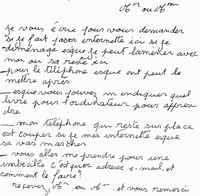 Mr ou Mme
je vous écris pour vous demander
si je fait poser internette ici si je
déménage esque je peut l'amener avec
moi ou sa reste ici
_ pour le téléphone esque ont peut le
mettre après
_ esque vous pouvez m'indiquer quel
livre pour l'ordinateur pour appren
dre
_ mon téléphone qui reste sur place
est couper si je met internette esque
sa vas marcher
_ vous aller me prendre pour une
imbécille c'est quoi adresse e-mail, et
comment le faire?
recever, Mr ou Mme et vous remercie